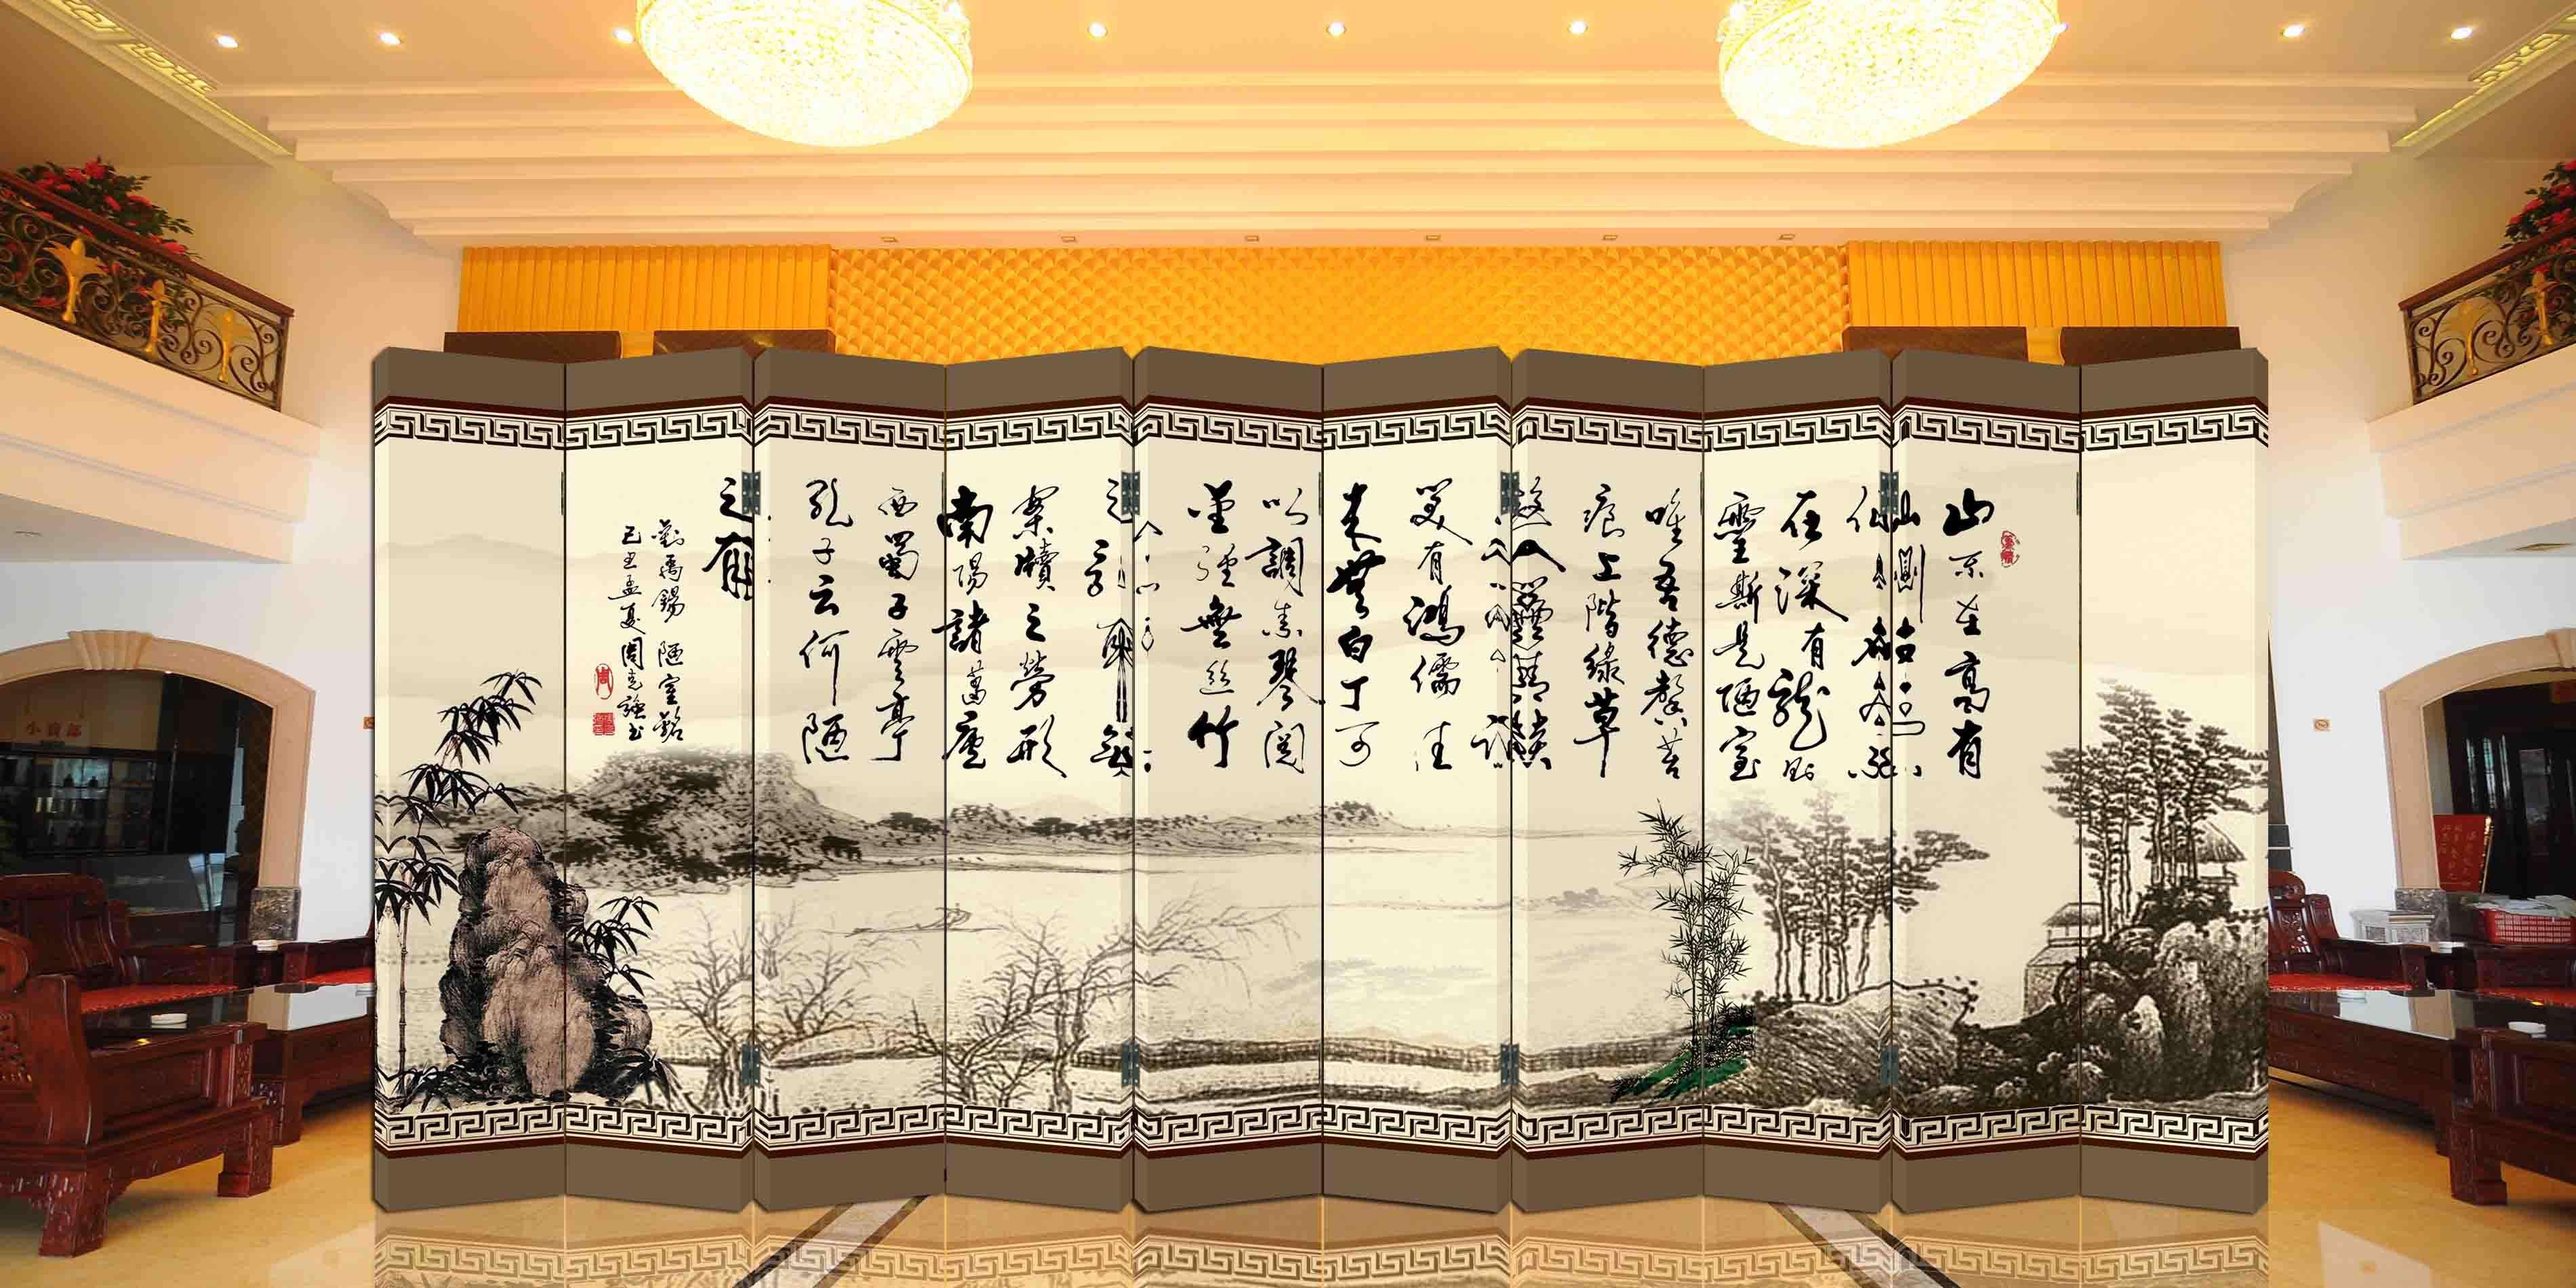 山不在高有
仙
在深有龍則
靈斯是陋室
唯吾德馨苔
痕上階綠草
入
笑有鴻儒往
来無白丁可
以調素琴閱
金經無絲竹
之
案牘之勞形
南陽諸葛廬
西蜀子雲亭
孔子云何陋
之有
劉禹錫 陋室銘
己丑孟夏周克強書
周
小賣部